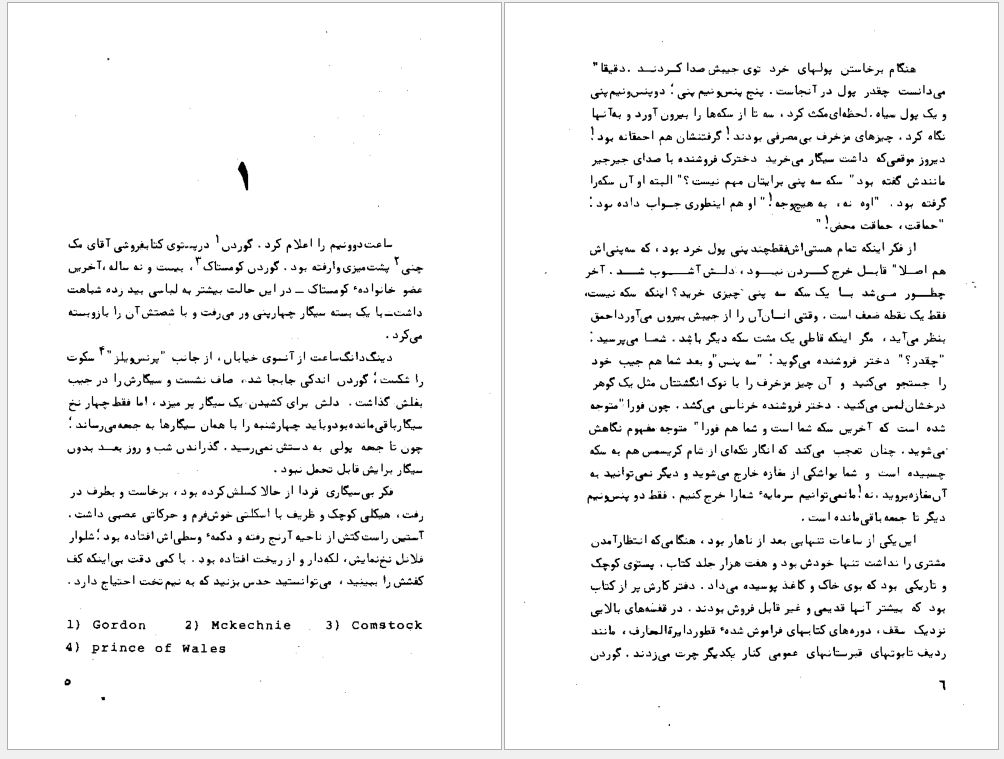 ۱
ساعت‌دوونیم را اعلام کرد . گوردن۱ درپستوی کتابفروشی آقای مک
چنی۲ پشت‌میزی وارفته بود . گوردن کومستاک۳ ، بیست و نه ساله ،آخرین
عضو خانواده‌ٔ کومستاک ــ در این حالت بیشتر به لباسی بید زده شباهت
داشت‌ــ با یک بسته سیگار چهارپنی ور می‌رفت و با شصتش آن را بازوبسته
می‌کرد .
دینگ‌دانگ‌ساعت از آنسوی خیابان ، از جانب "پرنس‌ویلز"۴ سکوت
را شکست ؛ گوردن اندکی جابجا شد ، صاف نشست و سیگارش را در جیب
بغلش گذاشت . دلش برای کشیدن یک سیگار پر میزد ، اما فقط چهار نخ
سیگارباقی‌مانده‌بودوباید چهارشنبه را با همان سیگارها به جمعه‌می‌رساند ؛
چون تا جمعه پولی به دستش نمی‌رسید . گذراندن شب و روز بعــد بدون
سیگار برایش قابل تحمل نبود .
فکر بی‌سیگاری فردا از حالا کسلش‌کرده بود ، برخاست و بطرف در
رفت ، هیکلی کوچک و ظریف با اسکلتی خوش‌فرم و حرکاتی عصبی داشت .
آستین راست‌کتش از ناحیه آرنج رفته و دکمه‌ٔ وسطی‌اش افتاده بود ؛ شلوار
فلانل نخ‌نمایش ، لکه‌دار و از ریخت افتاده بود . با کمی دقت بی‌اینکه کف
کفشش را ببینید ، می‌توانستید حدس بزنید که به نیم‌تخت احتیاج دارد .
1) Gordon 2) Mckechnie 3) Comstock
4) prince of Wales
۵
هنگام برخاستن پولهای خرد توی جیبش صدا کــردنــد .دقیقا"
می‌دانست چقدر پول در آنجاست . پنج پنس‌ونیم پنی ؛ دوپنس‌ونیم‌پنی
و یک پول سیاه .لحظه‌ای‌مکث کرد ، سه تا از سکه‌ها را بیرون آورد و به‌آنها
نگاه کرد . چیزهای مزخرف بی‌مصرفی بودند ! گرفتنشان هم احمقانه بود !
دیروز موقعی‌که داشت سیگار می‌خرید دخترک فروشنده با صدای جیرجیر
مانندش گفته بود " سکه سه پنی برایتان مهم نیست ؟" البته او آن سکه‌را
گرفته بود . "اوه نه ، به هیچ‌وجه !" او هم اینطوری جــواب داده بود :
"حماقت ، حماقت محض !"
از فکر اینکه تمام هستی‌اش‌فقط‌چند پنی پول خرد بود ، که سه‌پنی‌اش
هم اصلا" قابــل خرج کـــردن نبــود ، دلــش آشـــوب شــد . آخر
چطـــور مــی‌شد بــا یک سکه سه پنی چیزی خرید ؟ اینکه سکه نیست،
فقط یک نقطه ضعف است . وقتی انسان‌آن را از جیبش بیرون می‌آورداحمق
بنظر می‌آید ، مگر اینکه قاطی یک مشت سکه دیگر باشد . شمــا می‌پرسید :
"چقدر ؟" دختر فروشنده می‌گوید : "سه پنس"و بعد شما هم جیب خود
را جستجو می‌کنید و آن چیز مزخرف را با نوک انگشتتان مثل یک گوهر
درخشان‌لمس می‌کنید . دختر فروشنده خرناسی می‌کشد . چون فورا "متوجه
شده است که آخرین سکه شما است و شما هم فورا" متوجه مفهوم نگاهش
می‌شوید . چنان تعجب می‌کند که انگار تکه‌ای از شام کریسمس هم به سکه
چسبیده است و شما یواشکی از مغازه خارج می‌شوید و دیگر نمی‌توانید به
آن‌مغازه‌بروید .نه ! مانمی‌توانیم سرمایه‌ٔ شمارا خرج کنیم . فقط دو پنس‌ونیم
دیگر تا جمعه‌باقی‌مانده است .
این‌یکی از ساعات تنهایی بعد از ناهار بود ، هنگامی‌که انتظارآمدن
مشتری را نداشت تنها خودش بود و هفت هزار جلد کتاب . پستوی کوچک
و تاریکی بود که بوی خاک و کاغذ پوسیده می‌داد . دفتر کارش پر از کتاب
بود که بیشتر آنها قدیمی و غیر قابل فروش بودند . در قفسه‌های بالایی
نزدیک سقف ، دوره‌های کتابهای فراموش شده‌ٔ قطوردایرةالمعارف ، مانند
ردیف تابوتهای قبرستانهای عمومی کنار یکدیگر چرت می‌زدند . گوردن
۶